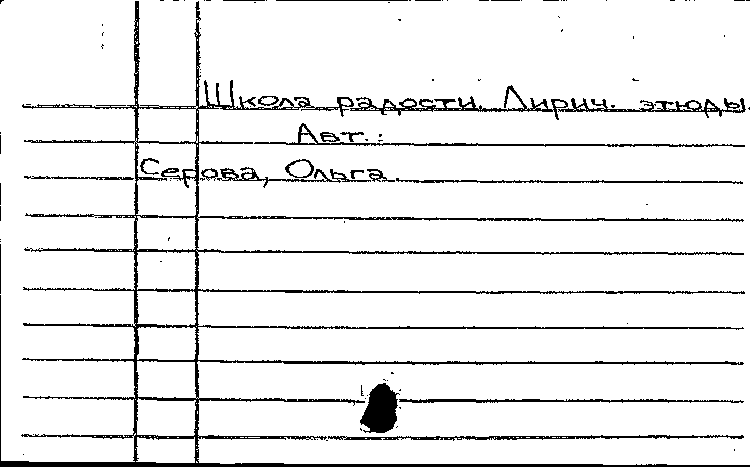 Школа радости. Лирич. этюды.
Авт.:
Серова, Ольга.